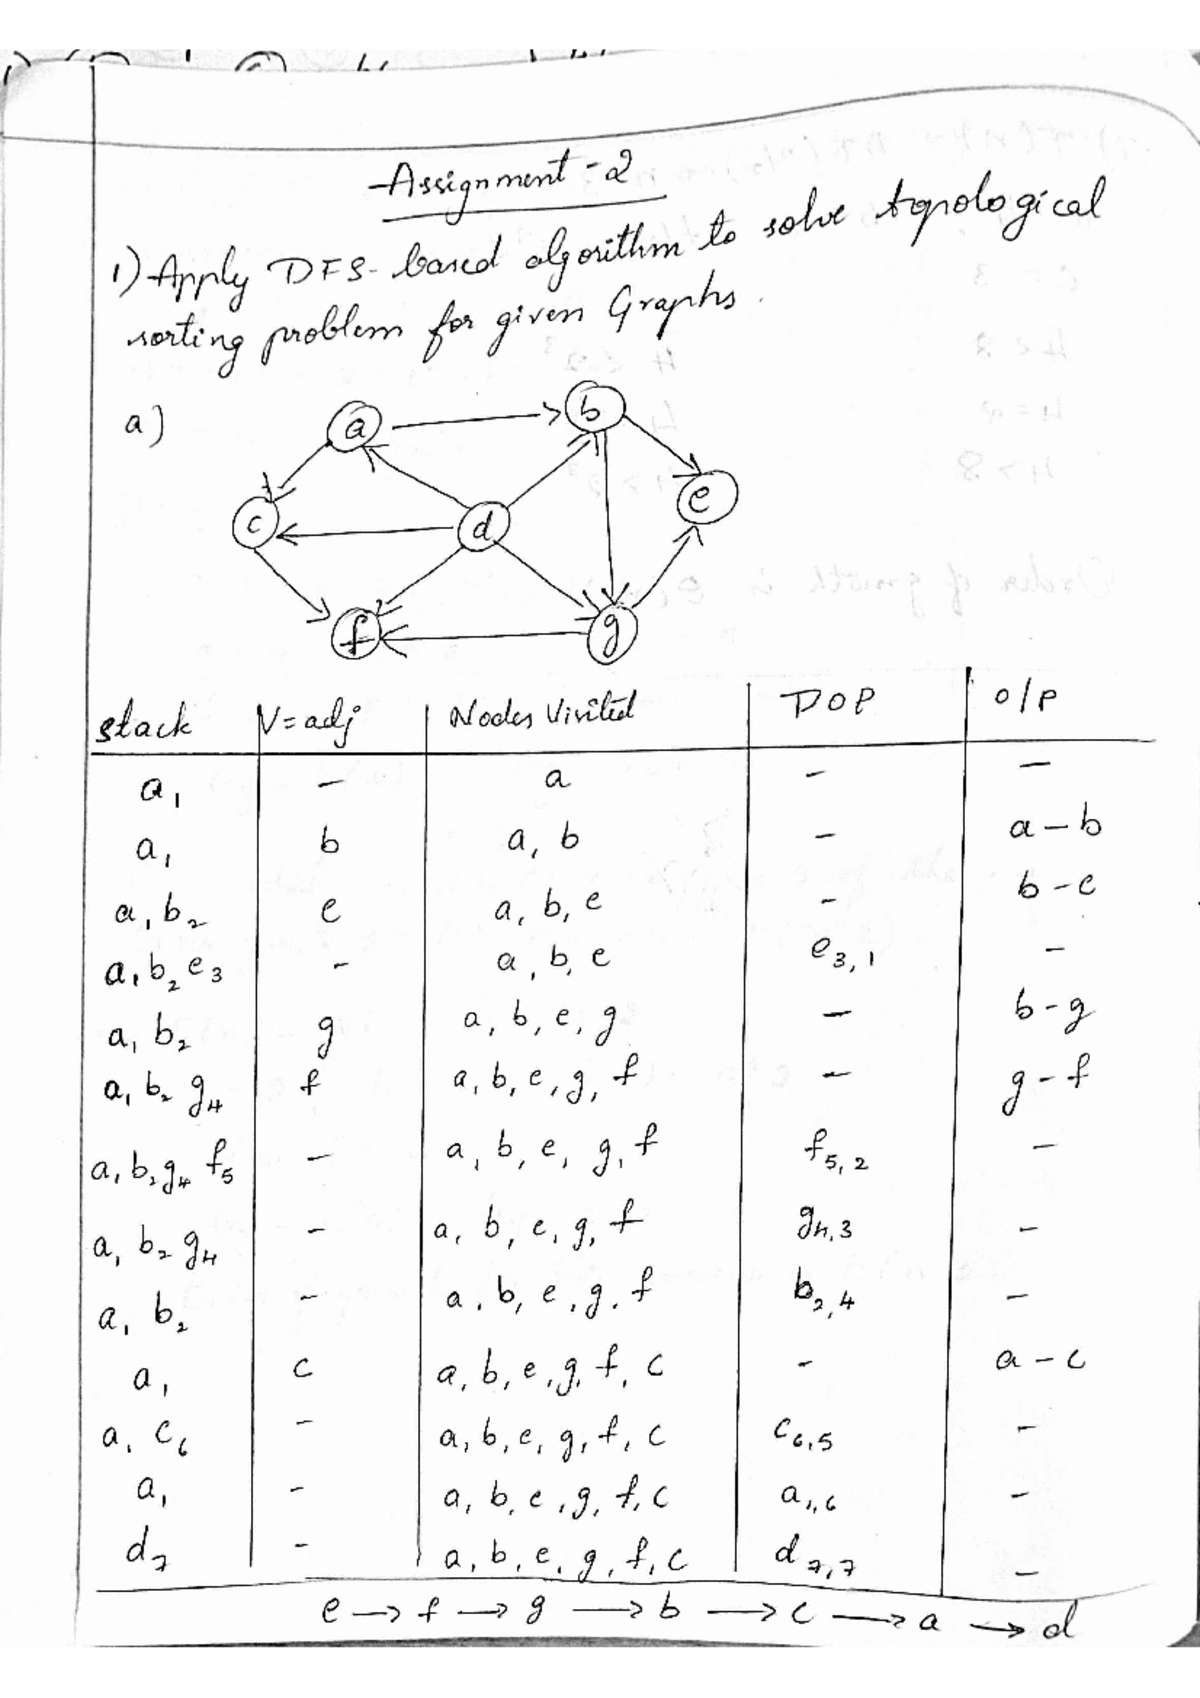 Assignment - 2
1) Apply DFS- based algorithm to solve topological
sorting problem for given Graphs.
a)
a b
c d e
f g
stack V=adj Nodes Visited POP O/P
a1 - a - -
a1 b a, b - a-b
a1 b2 e a, b, e - b-e
a1 b2 e3 - a, b, e e3,1 -
a1 b2 g a, b, e, g - b-g
a1 b2 g4 f a, b, e, g, f - g-f
a1 b2 g4 f5 - a, b, e, g, f f5,2 -
a1 b2 g4 - a, b, e, g, f g4,3 -
a1 b2 - a, b, e, g, f b2,4 -
a1 c a, b, e, g, f, c - a-c
a1 c6 - a, b, e, g, f, c c6,5 -
a1 - a, b, e, g, f, c a1,6 -
d7 - a, b, e, g, f, c d7,7 -
e → f → g → b → c → a → d